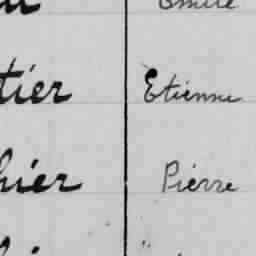 Emile
tier Etienne
hier Pierre